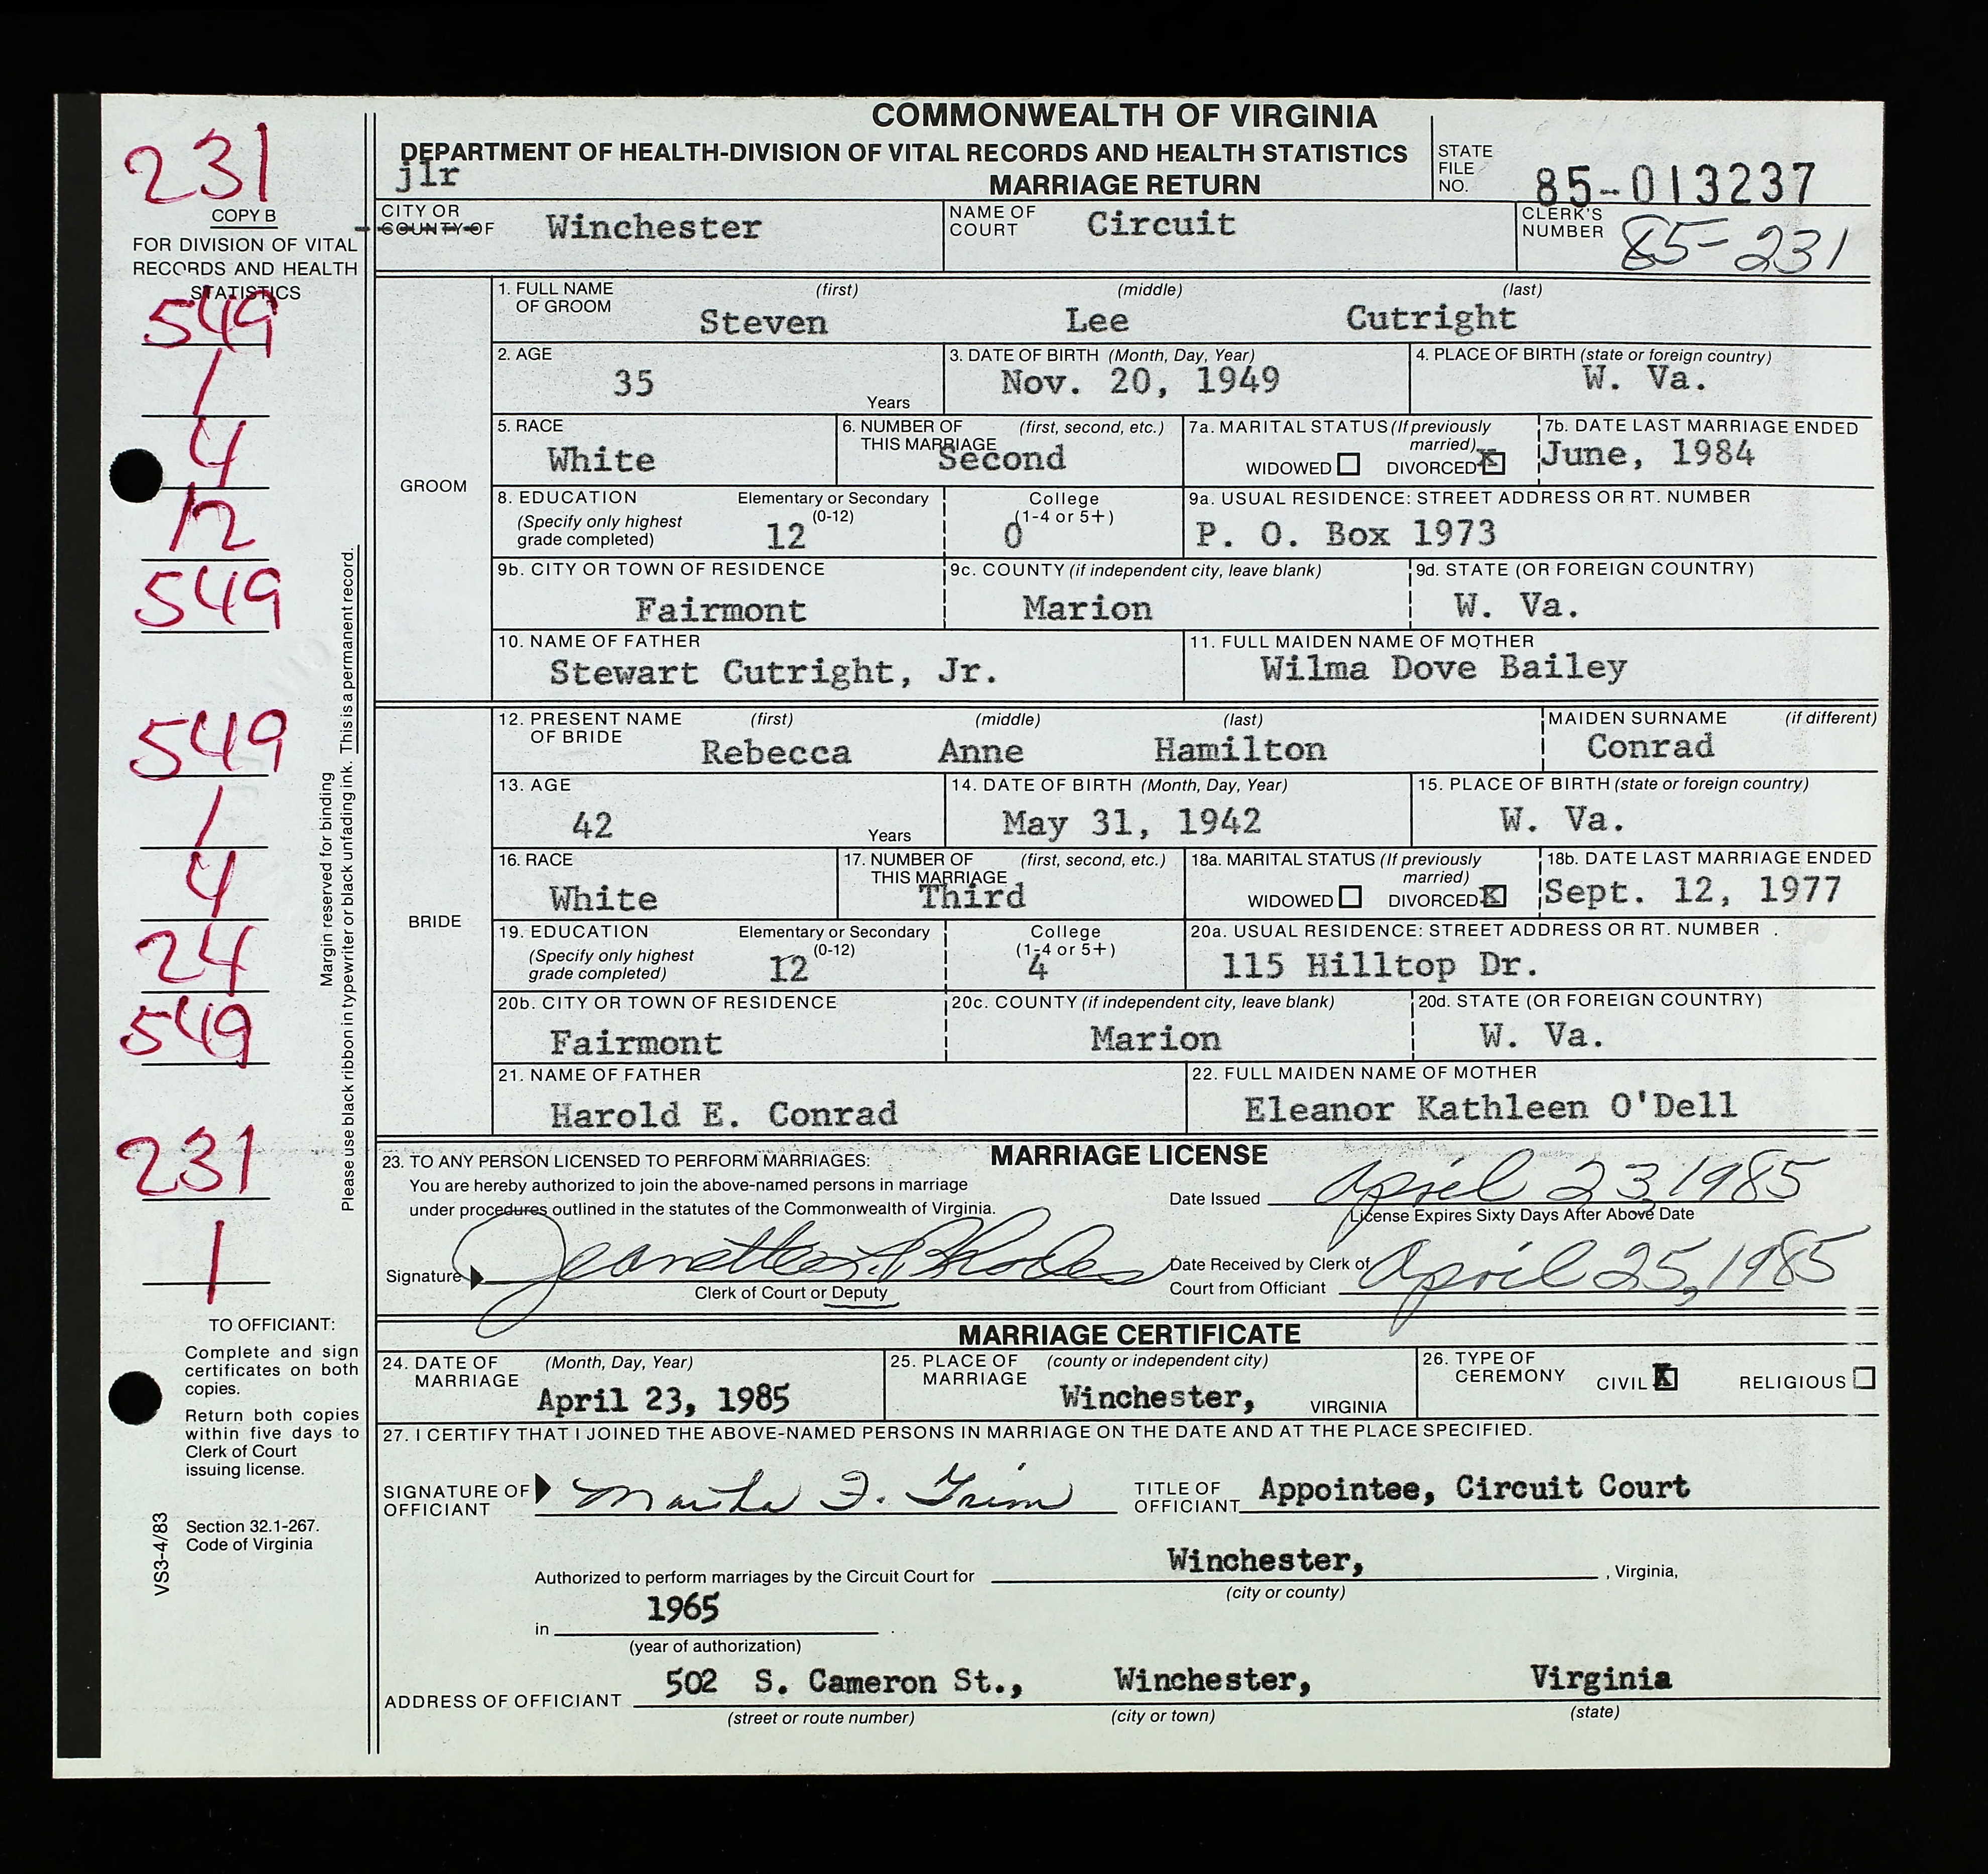 COMMONWEALTH OF VIRGINIA
DEPARTMENT OF HEALTH-DIVISION OF VITAL RECORDS AND HEALTH STATISTICS
jlr
MARRIAGE RETURN
STATE FILE NO. 85-013237
CITY OR COUNTY OF Winchester
NAME OF COURT Circuit
CLERK'S NUMBER 85-231
231
COPY B
FOR DIVISION OF VITAL
RECORDS AND HEALTH
STATISTICS
549
1
4
12
549
549
1
4
24
549
231
1
Margin reserved for binding
Please use black ribbon in typewriter or black unfading ink. This is a permanent record.
TO OFFICIANT:
Complete and sign
certificates on both
copies.
Return both copies
within five days to
Clerk of Court
issuing license.
Section 32.1-267.
Code of Virginia
VS3-4/83
GROOM
1. FULL NAME OF GROOM (first) (middle) (last)
Steven Lee Cutright
2. AGE 35 Years
3. DATE OF BIRTH (Month, Day, Year) Nov. 20, 1949
4. PLACE OF BIRTH (state or foreign country) W. Va.
5. RACE White
6. NUMBER OF THIS MARRIAGE (first, second, etc.) Second
7a. MARITAL STATUS (If previously married) WIDOWED DIVORCED X
7b. DATE LAST MARRIAGE ENDED June, 1984
8. EDUCATION (Specify only highest grade completed) Elementary or Secondary (0-12) 12 College (1-4 or 5+) 0
9a. USUAL RESIDENCE: STREET ADDRESS OR RT. NUMBER P. O. Box 1973
9b. CITY OR TOWN OF RESIDENCE Fairmont
9c. COUNTY (if independent city, leave blank) Marion
9d. STATE (OR FOREIGN COUNTRY) W. Va.
10. NAME OF FATHER Stewart Cutright, Jr.
11. FULL MAIDEN NAME OF MOTHER Wilma Dove Bailey
BRIDE
12. PRESENT NAME OF BRIDE (first) (middle) (last) MAIDEN SURNAME (if different)
Rebecca Anne Hamilton Conrad
13. AGE 42 Years
14. DATE OF BIRTH (Month, Day, Year) May 31, 1942
15. PLACE OF BIRTH (state or foreign country) W. Va.
16. RACE White
17. NUMBER OF THIS MARRIAGE (first, second, etc.) Third
18a. MARITAL STATUS (If previously married) WIDOWED DIVORCED X
18b. DATE LAST MARRIAGE ENDED Sept. 12, 1977
19. EDUCATION (Specify only highest grade completed) Elementary or Secondary (0-12) 12 College (1-4 or 5+) 4
20a. USUAL RESIDENCE: STREET ADDRESS OR RT. NUMBER 115 Hilltop Dr.
20b. CITY OR TOWN OF RESIDENCE Fairmont
20c. COUNTY (if independent city, leave blank) Marion
20d. STATE (OR FOREIGN COUNTRY) W. Va.
21. NAME OF FATHER Harold E. Conrad
22. FULL MAIDEN NAME OF MOTHER Eleanor Kathleen O'Dell
MARRIAGE LICENSE
23. TO ANY PERSON LICENSED TO PERFORM MARRIAGES:
You are hereby authorized to join the above-named persons in marriage
under procedures outlined in the statutes of the Commonwealth of Virginia.
Date Issued April 23, 1985
License Expires Sixty Days After Above Date
Signature Jeanette Rhodes
Clerk of Court or Deputy
Date Received by Clerk of Court from Officiant April 25, 1985
MARRIAGE CERTIFICATE
24. DATE OF MARRIAGE (Month, Day, Year) April 23, 1985
25. PLACE OF MARRIAGE (county or independent city) Winchester, VIRGINIA
26. TYPE OF CEREMONY CIVIL X RELIGIOUS
27. I CERTIFY THAT I JOINED THE ABOVE-NAMED PERSONS IN MARRIAGE ON THE DATE AND AT THE PLACE SPECIFIED.
SIGNATURE OF OFFICIANT Martha F. Grim
TITLE OF OFFICIANT Appointee, Circuit Court
Authorized to perform marriages by the Circuit Court for Winchester, , Virginia,
(city or county)
in 1965
(year of authorization)
ADDRESS OF OFFICIANT 502 S. Cameron St., Winchester, Virginia
(street or route number) (city or town) (state)